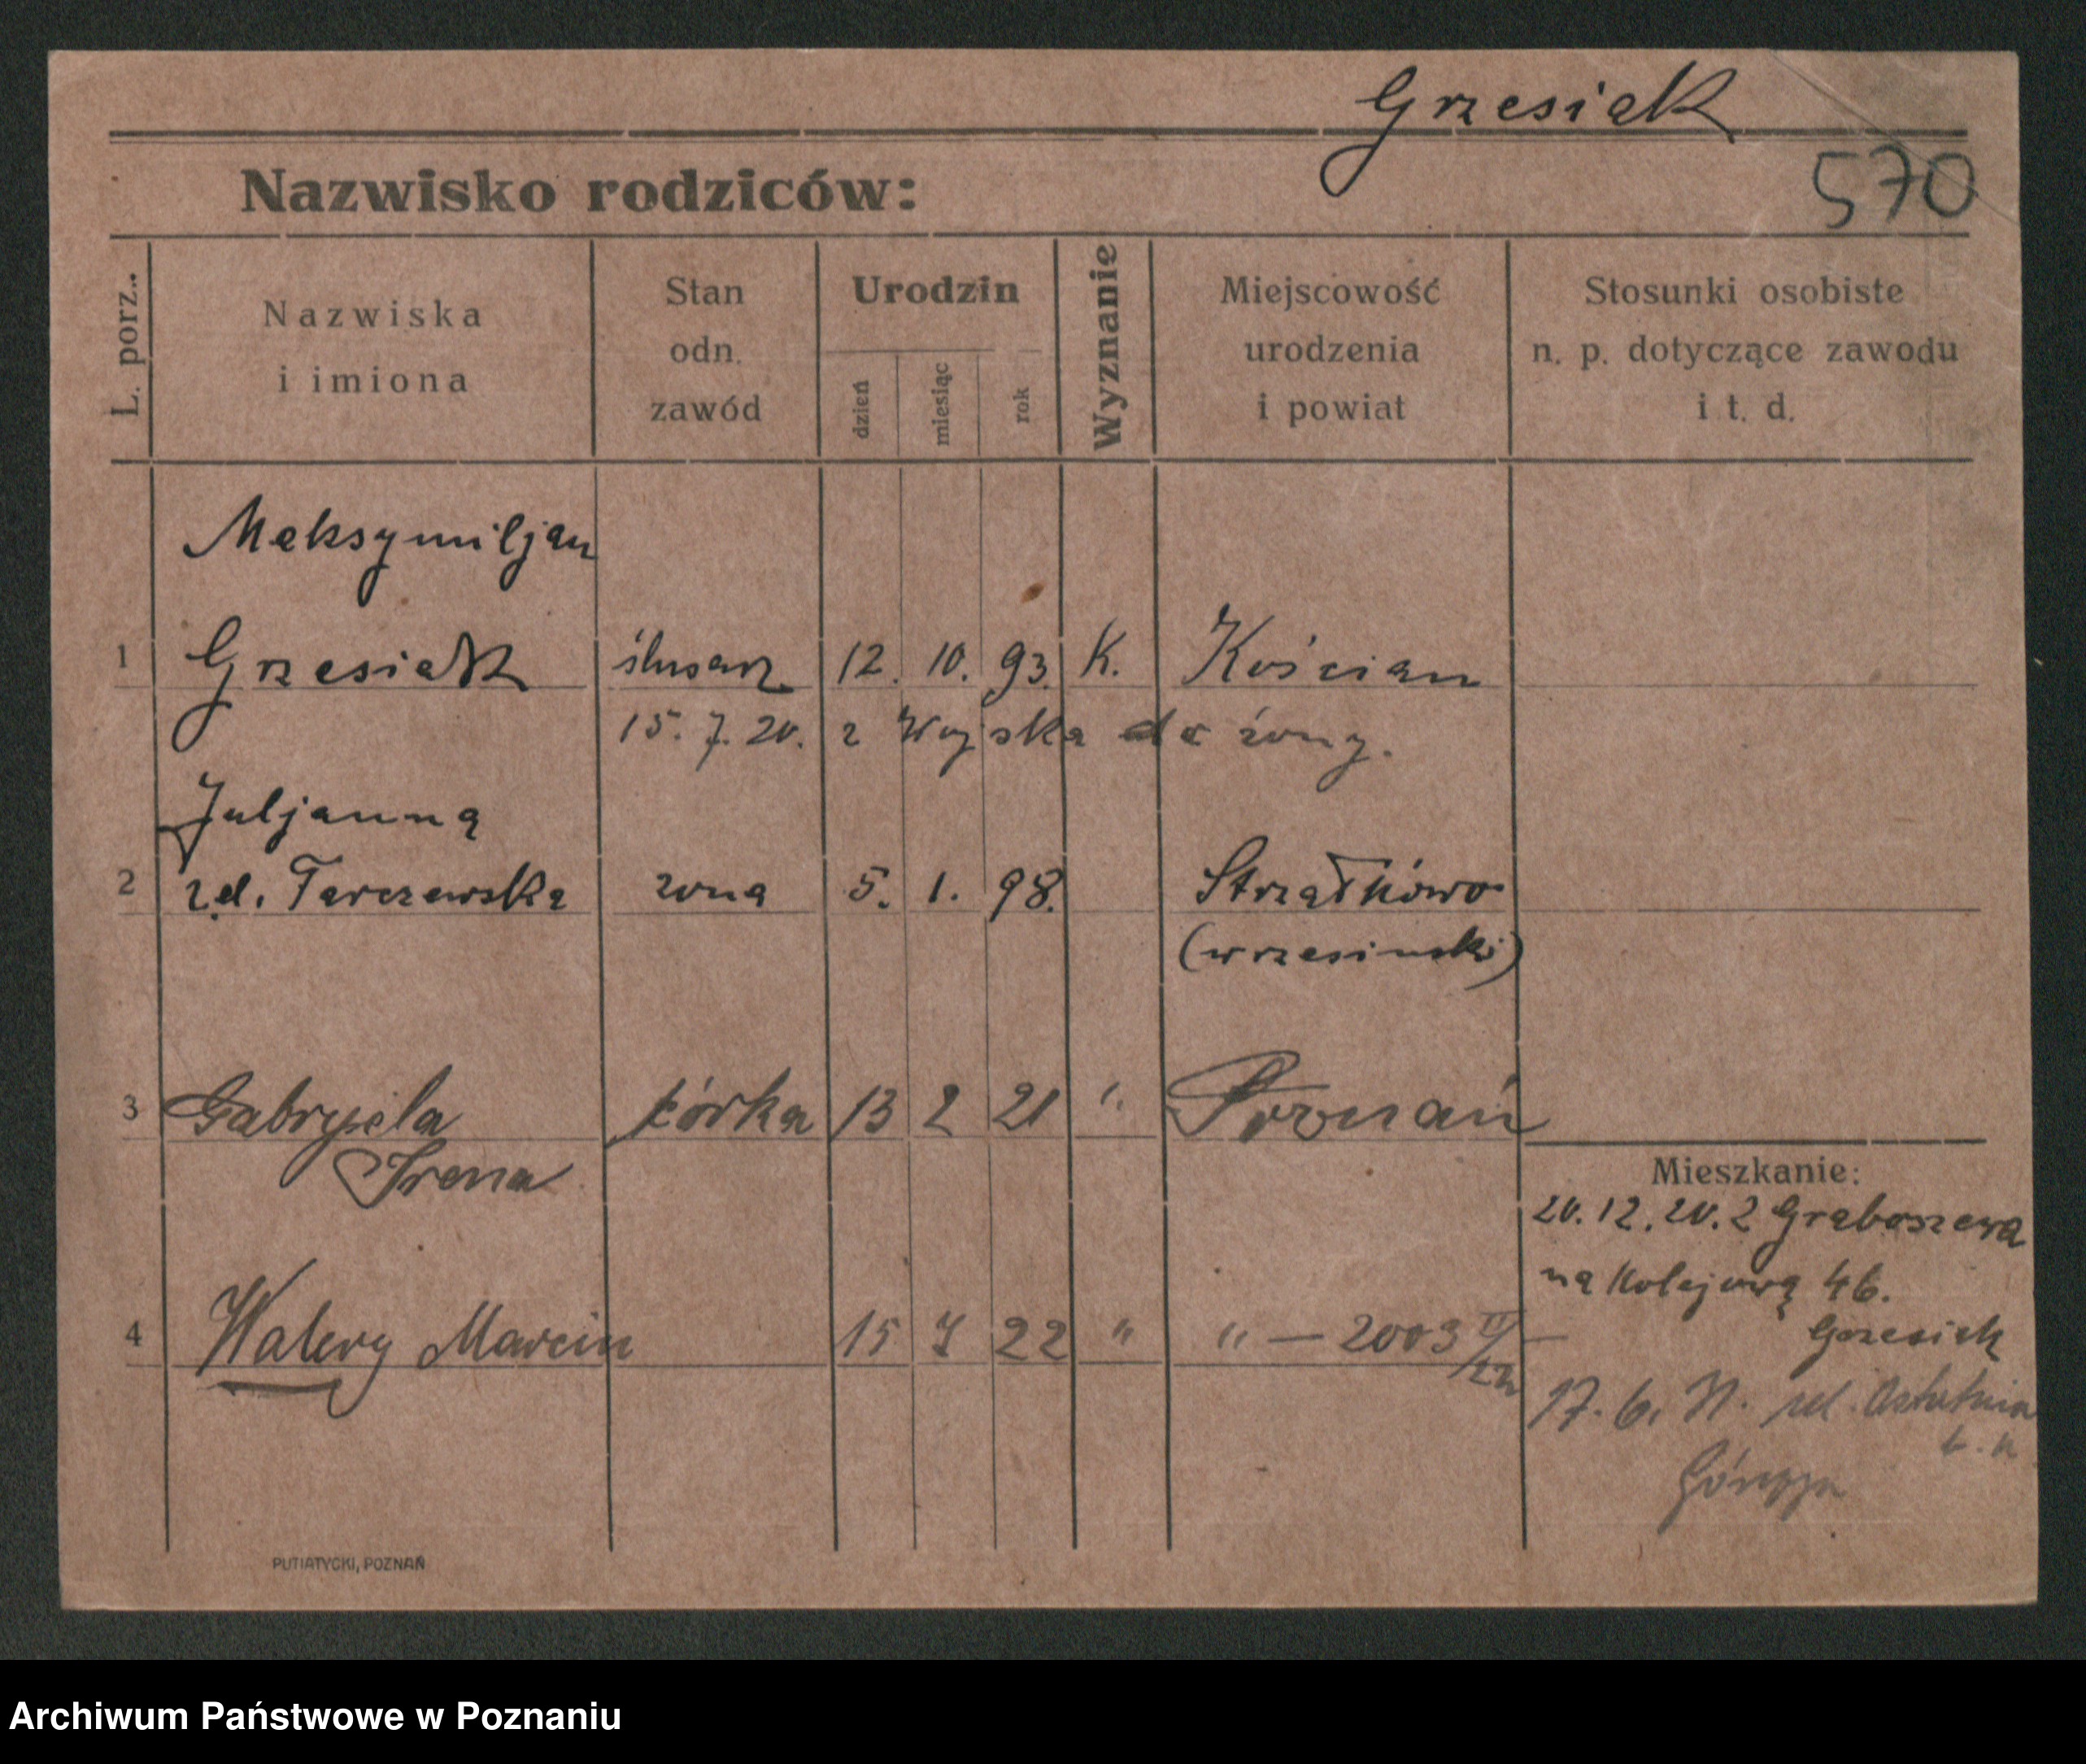 Grzesiak
570
Nazwisko rodziców:
L. porz..
Nazwiska
i imiona
Stan
odn.
zawód
Urodzin
dzień
miesiąc
rok
Wyznanie
Miejscowość
urodzenia
i powiat
Stosunki osobiste
n. p. dotyczące zawodu
i t. d.
Maksymiljan
1 Grzesiak ślusarz 12. 10. 93. K. Kościan
15. 7. 20. z Wojska do żony.
Juljanna
2 Tarczewska żona 5. 1. 98. Strzałkowo
(wrzesiński)
3 Gabryela córka 13 2 21 " Poznań
Irena
Mieszkanie:
20. 12. 20. z Graboszewa
na Kolejową 46.
4 Walery Marcin 15 7 22 " " — 2003
Grzesiak
17. 6.
PUTIATYCKI, POZNAŃ
Archiwum Państwowe w Poznaniu